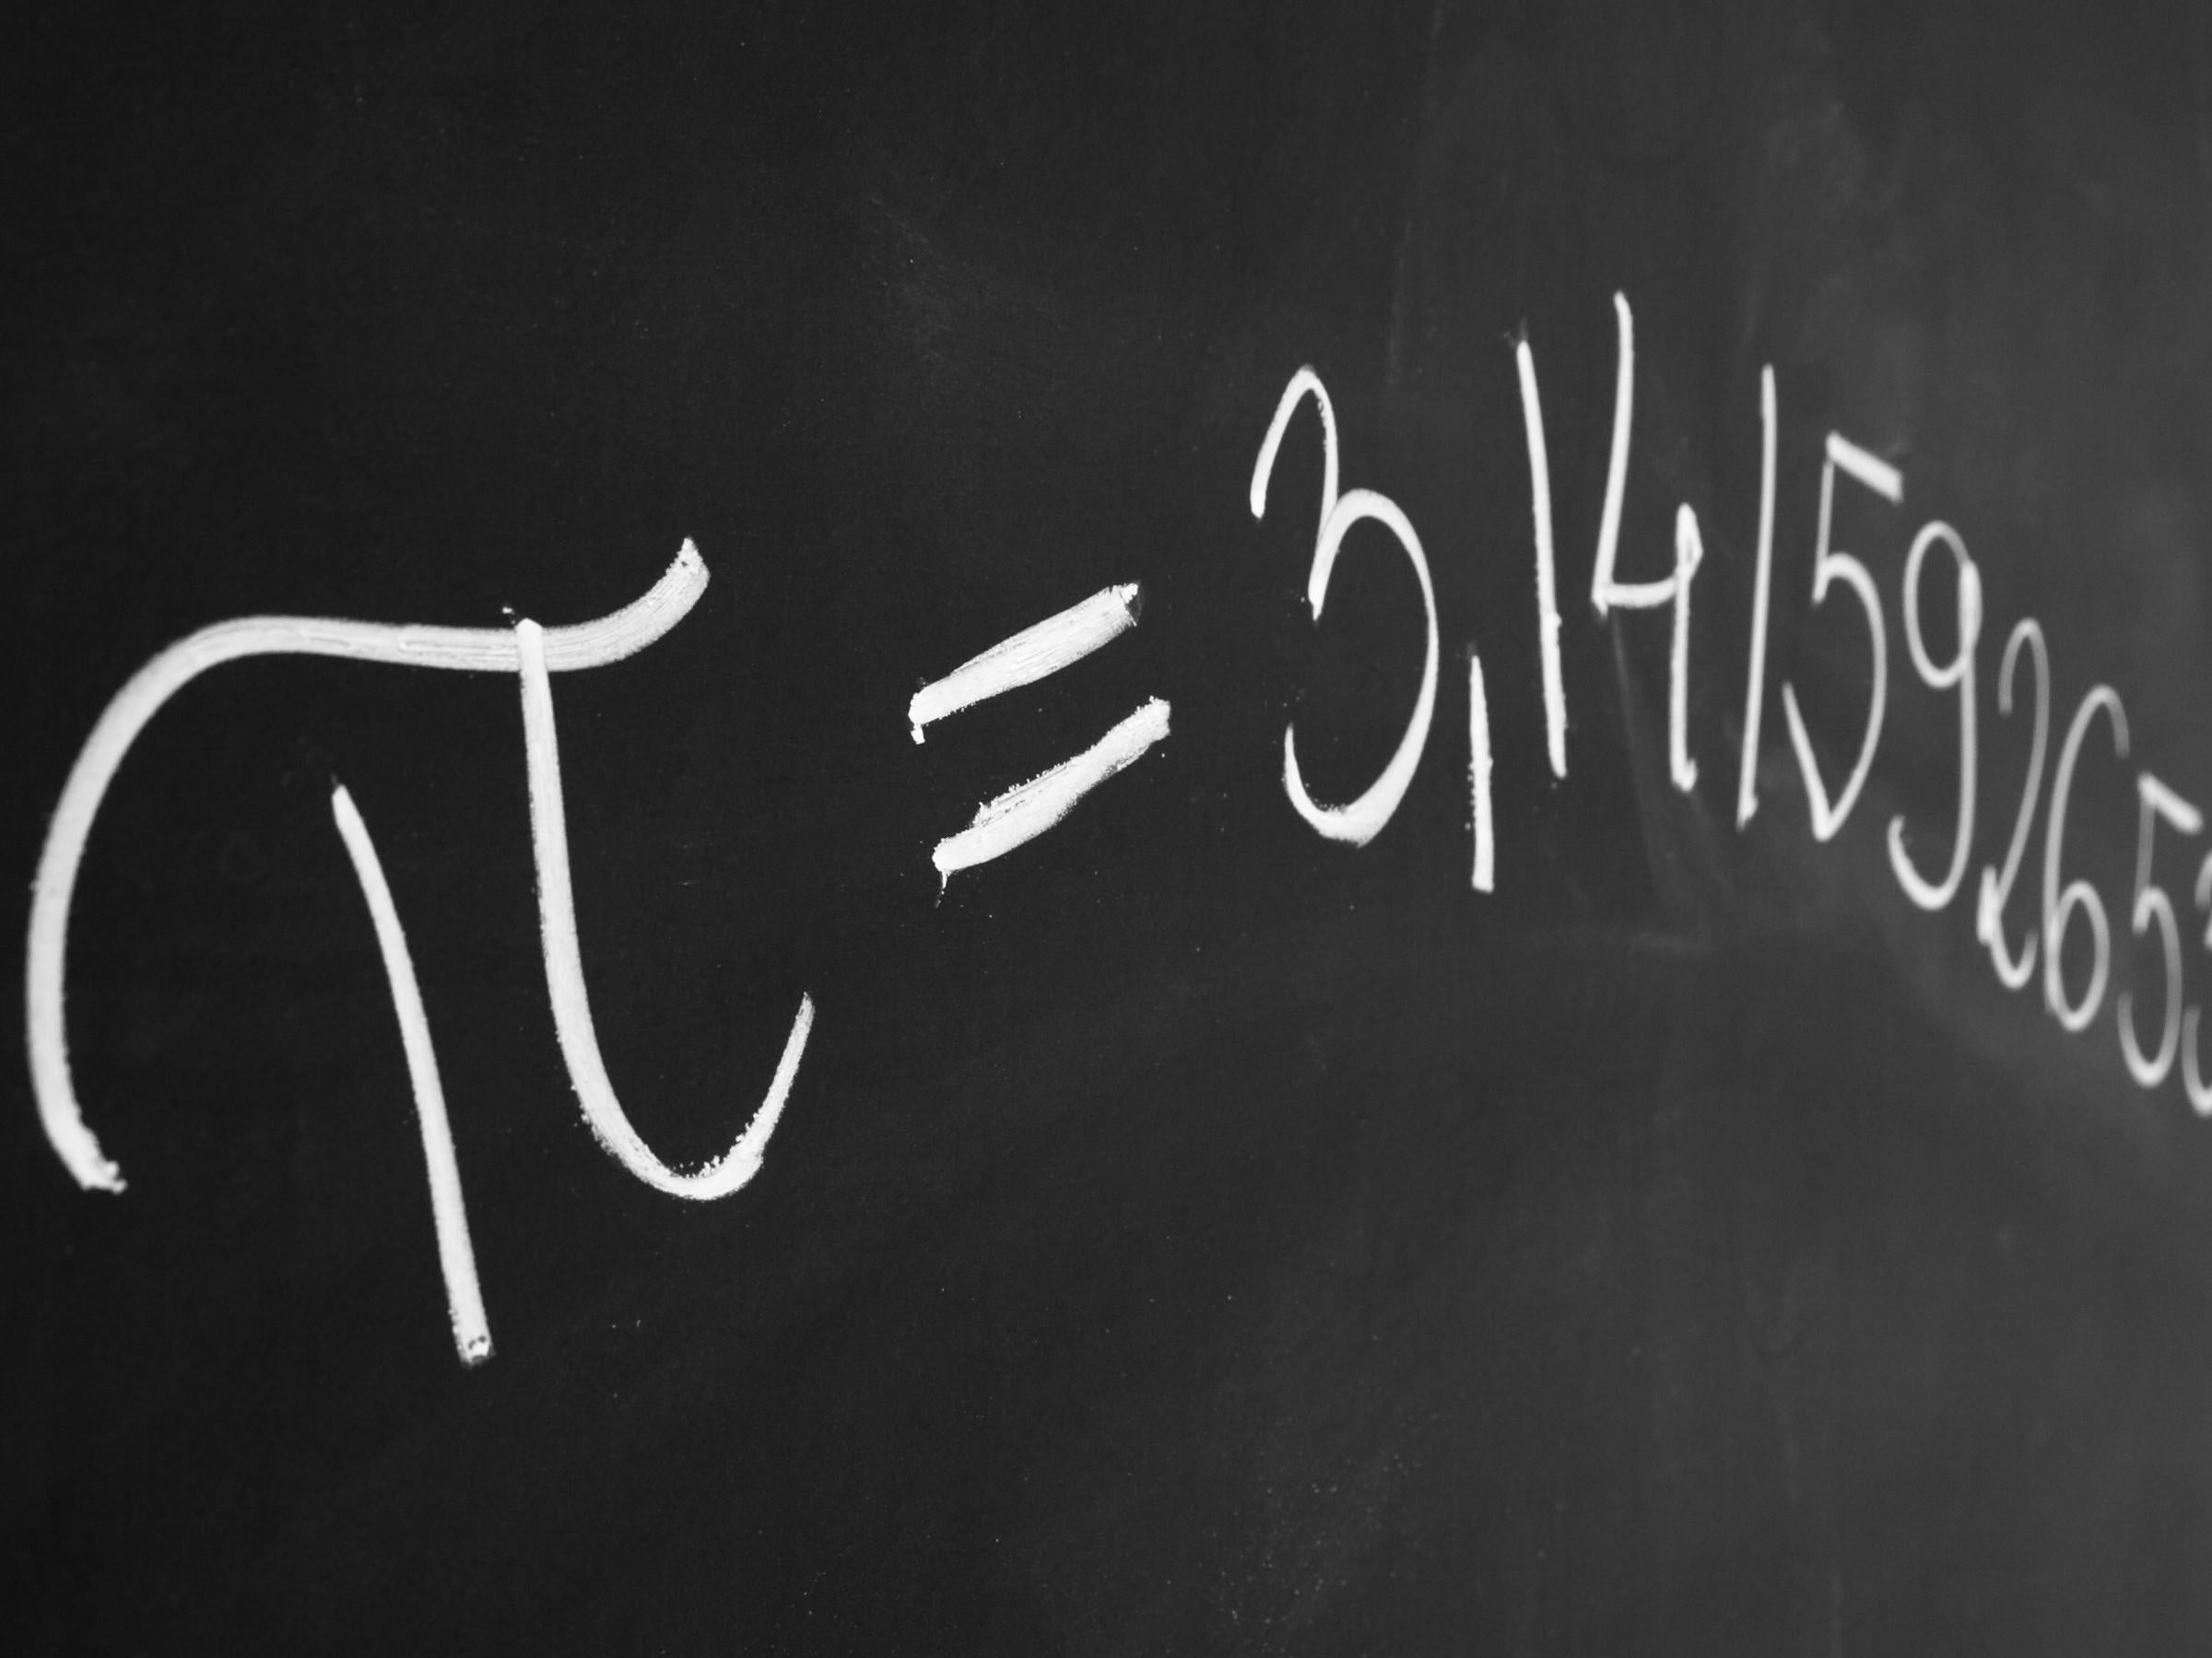 π = 3,14159265